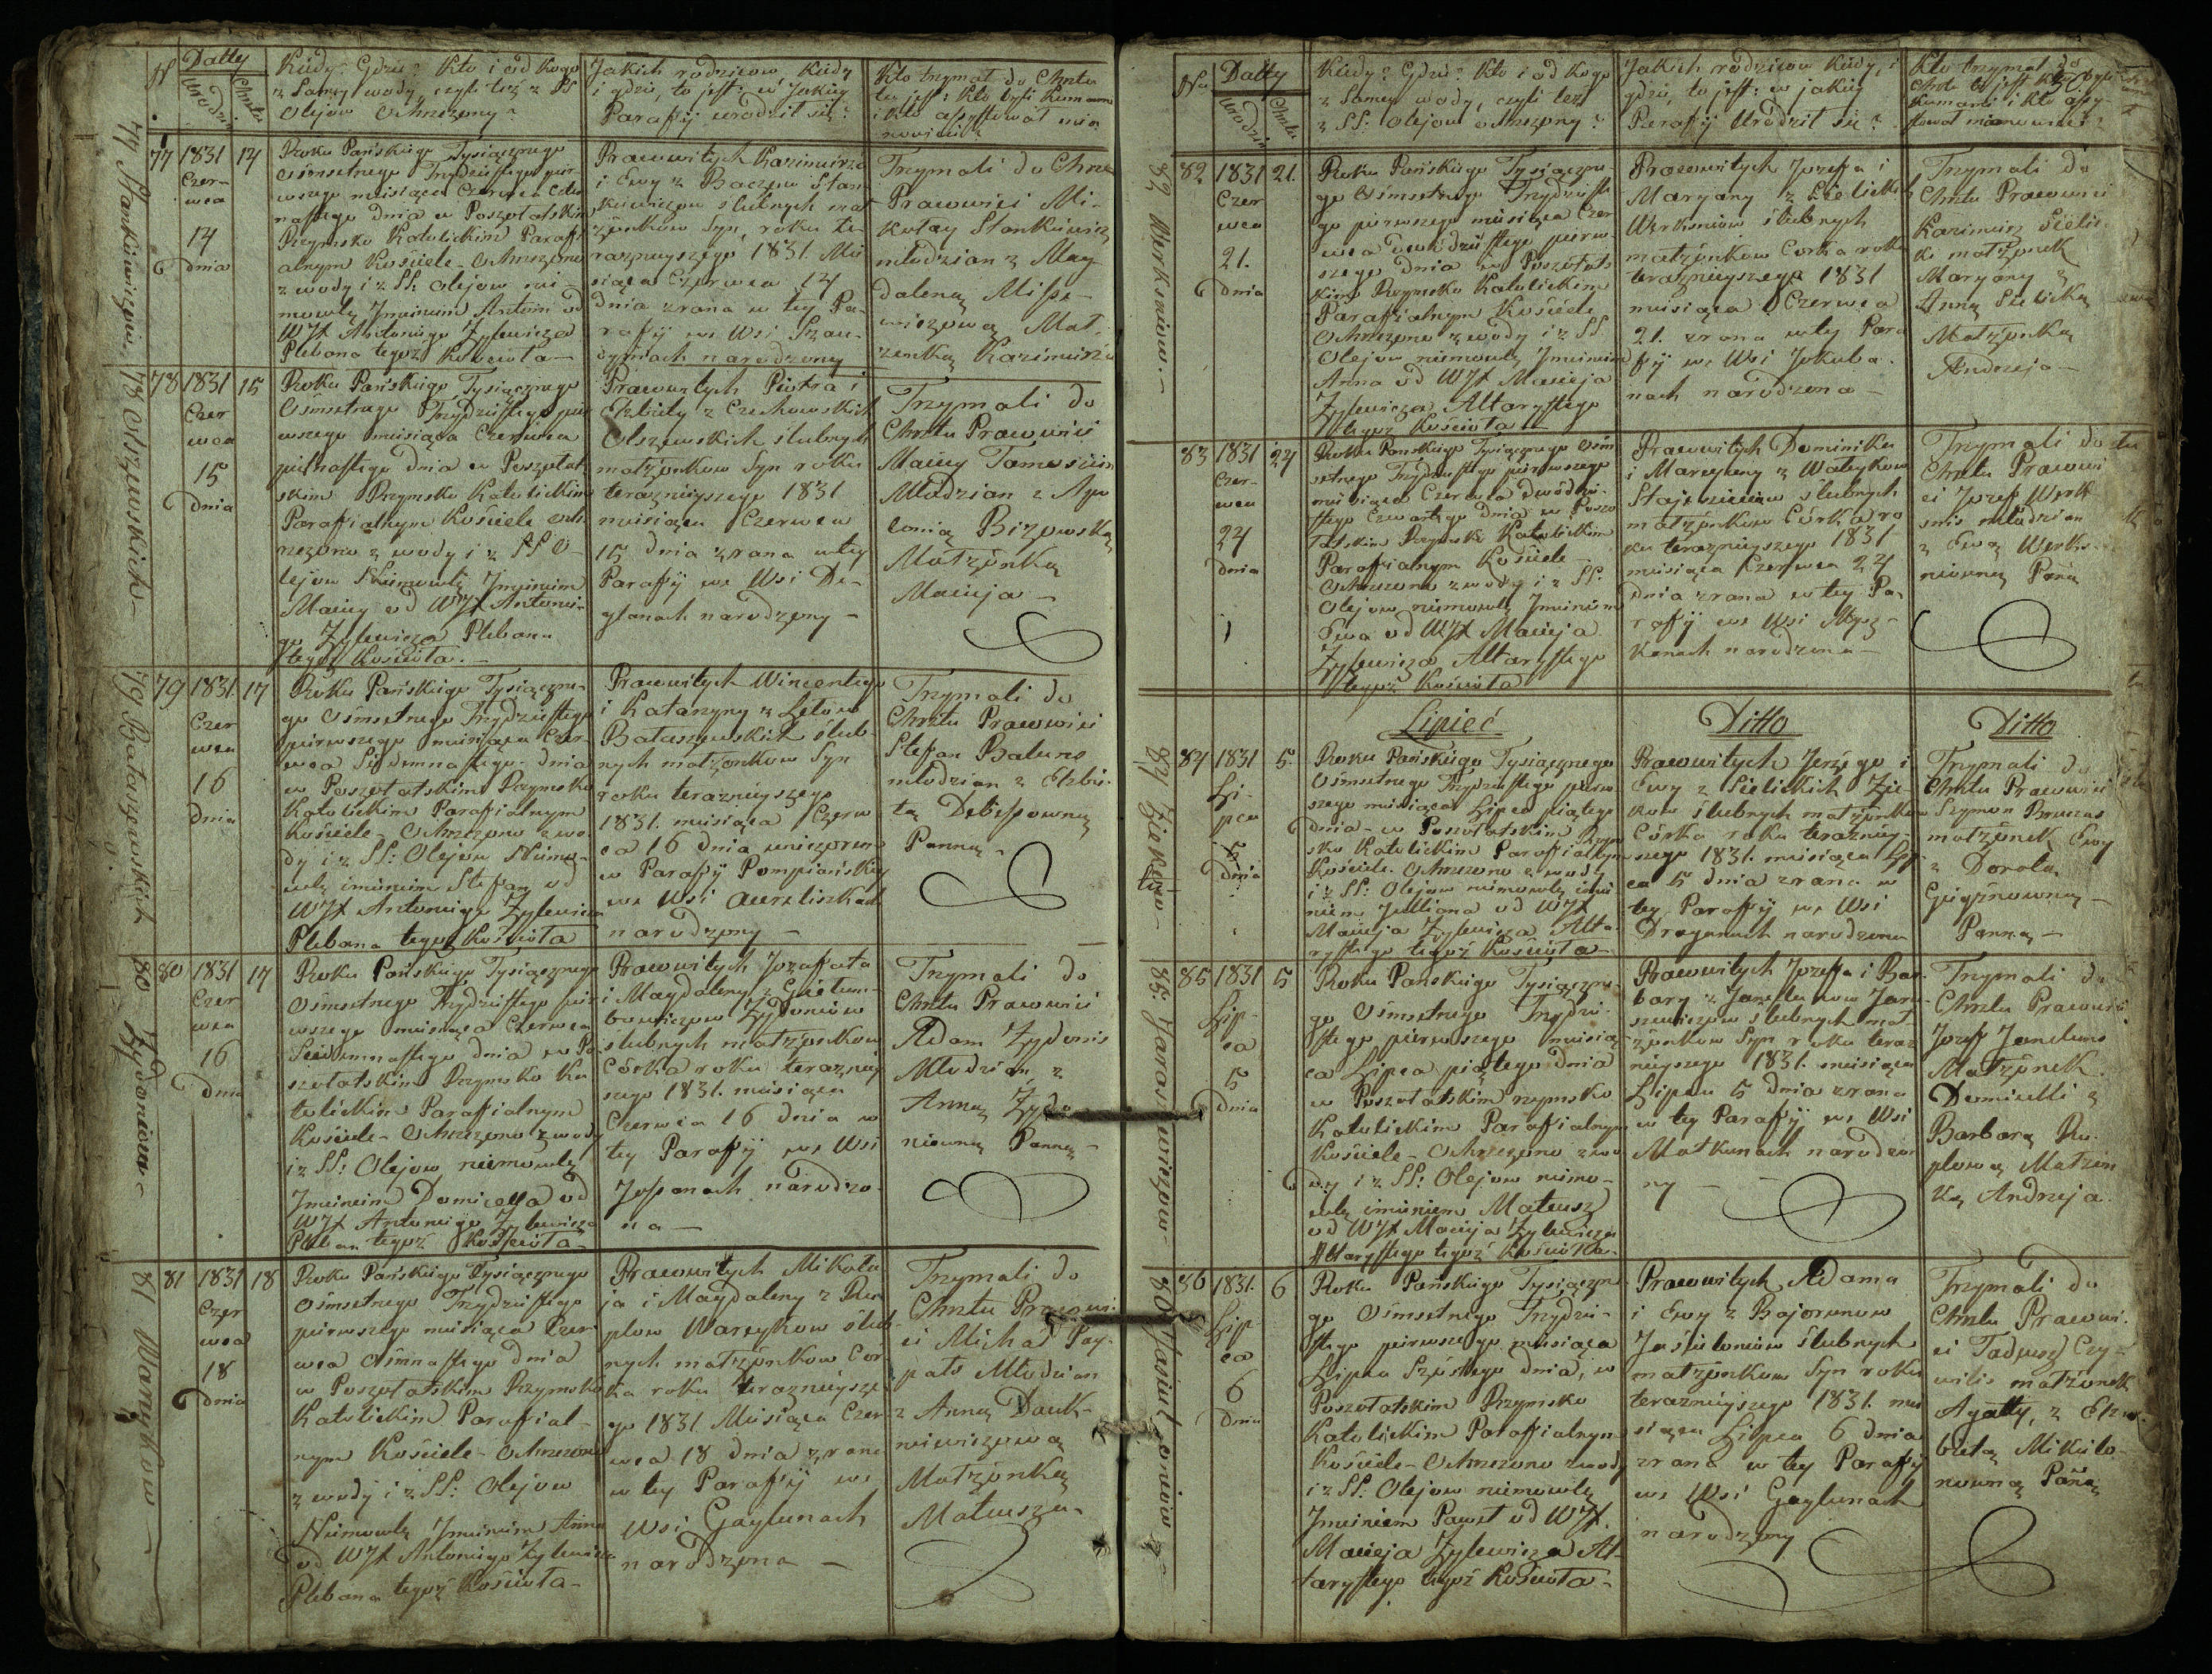 N
Datty
Urodzin
Chrztu
Kiedy? Gdzie? Kto i od kogo
z Samey wody, czyli też z SS
Olejow Ochrzczony?
Jakich rodzicow, kiedy
i gdzie, to jest: w jakiey
Parafij urodził się?
Kto trzymał do Chrztu
to jest: kto byli kumami
i kto assystował mia
nowicie?
77 Stankiewiczow
77
1831
Czer-
wca
14
dnia
14
Roku Pańskiego Tysiącznego
Ośmsetnego Trzydziestego pier
wszego miesiąca Czerwca czter
nastego dnia w Poszołatskim
Rzymsko Katolickim Paraffi
alnym Kosciele Ochrzczono
z wody i z SS: olejow nie-
mowlę Imieniem Antoni od
WJX Antoniego Zylewicza
Plebana tegoż Kościoła
Prawowitych Kazimierza
i Ewy z Baczow Stan
kiewiczow ślubnych mał
żonkow Syn, roku te-
raznieyszego 1831. Mie
siąca Czerwca 14
dnia zrana w tey Pa-
rafij we Wsi Szau-
dyniach narodzony
Trzymali do Chrz
Prawowici Mi-
kołay Stankiewicz
młodzian z Mag
daleną Misse-
wiczową Mał-
żenką Kazimierza
78 Olszewskich
78
1831
Czer
wca
15
dnia
15
Roku Pańskiego Tysiącznego
Ośmsetnego Trzydziestego pier
wszego miesiąca Czerwca
pietnastego dnia w Poszołat
skim Rzymsko Katolickim
Paraffialnym Kościele och
rzczono z wody i z SS O-
lejow Niemowlę Imieniem
Maciey od WJX Antonie-
go Zylewicza Plebana
tegoż Kościoła.
Prawowitych Piotra i
Elzbiety z Czechowskich
Olszewskich ślubnych
małżonkow Syn roku
teraznieyszego 1831
miesiąca Czerwca
15 dnia zrana w tey
Parafij we Wsi De-
glanach narodzony
Trzymali do
Chrztu Prawowici
Maciey Tamosiun
Młodzian z Apo
lonią Bizowską
Małżonką
Macieja
79 Bałaszewskich
79
1831
Czer
wca
16
dnia
17
Roku Pańskiego Tysiączne-
go Ośmsetnego Trzydziestego
pierwszego miesiąca Czer-
wca Siedmnastego dnia
w Poszołatskim Rzymsko
Katolickim Parafialnym
Kościele Ochrzczono z wo
dy i z SS: Olejow Niemo-
wlę imieniem Stefan od
WJX Antoniego Zylewicza
Plebana tegoż Kościoła
Prawowitych Wincentego
i Katarzyny z Letow
Bałaszewskich ślub-
nych małżonkow Syn
roku teraznieyszego
1831. miesiąca Czerw
ca 16 dnia wieczorem
w Parafij Pompiańskiey
we Wsi Aureliszkach
narodzony
Trzymali do
Chrztu Prawowici
Stefan Baluns
młodzian z Elzbie-
tą Debessowną
Panną
80 Zydoniow
80
1831
Czer
wca
16
dnia
17
Roku Pańskiego Tysiącznego
Ośmsetnego Trzydziestego pier
wszego miesiąca Czerwca
Siedmnastego dnia w Po
szołatskim Rzymsko Ka
tolickim Parafialnym
Kościele Ochrzczono z wody
i z SS: Olejow niemowlę
Imieniem Domicella od
WJX Antoniego Zylewicza
Plebana tegoż Kościoła
Prawowitych Jozafata
i Magdaleny z Giełum-
bowiczow Zydoniow
ślubnych małżonkow
Córka roku teraznie
szego 1831. miesiąca
Czerwca 16 dnia w
tey Parafij we Wsi
Jossanach narodzo-
na
Trzymali do
Chrztu Prawowici
Adam Zydonis
Młodzian z
Anną Zydo
niowną Panną
81 Warnykow
81
1831
Czer
wca
18
dnia
18
Roku Pańskiego Tysiącznego
Ośmsetnego Trzydziestego
pierwszego miesiąca Czer
wca Ośmnastego dnia
w Poszołatskim Rzymsko
Katolickim Paraffial-
nym Kościele Ochrzczono
z wody i z SS: Olejow
Niemowlę Imieniem Anna
od WJX Antoniego Zylewicza
Plebana tegoż Kościoła
Prawowitych Mikoła
ja i Magdaleny z Ru
plow Warnykow ślub-
nych małżonkow Cor
ka roku teraznieysze
go 1831 Miesiąca Czer
wca 18 dnia zrana
w tey Parafij we
Wsi Gaylunach
narodzona
Trzymali do
Chrztu Prawowi-
ci Michał
Młodzian
z Anną Dauk-
niewiczową
Małżonką
Mateusza
No
Datty
Urodzin
Chrztu
Kiedy? Gdzie? Kto i od kogo
z Samey wody, czyli też
z SS: olejow ochrzczony?
Jakich rodzicow kiedy, i
gdzie, to jest: w jakiey
Parafij Urodził się?
Kto trzymał do
Chrztu to jest kto byli
kumami i kto assy-
stował mianowicie?
82 Werksniow
82
1831
Czer
wca
21.
dnia
21.
Roku Pańskiego Tysiączne-
go Ośmsetnego Trzydzieste
go pierwszego miesiąca Czer
wca dwódziestego pierw-
szego dnia w Poszołats
kim Rzymsko Katolickim
Parafialnym Kościele
Ochrzczono z wody i z SS
Olejow niemowlę Imieniem
Anna od WJX Macieja
Zylewicza Altarystego
tegoż Kościoła
Prawowitych Jozefa i
Maryany z Sielickich
Werksniow ślubnych
małżonkow Corka roku
teraznieyszego 1831
miesiąca Czerwca
21. zrana w tey Para
fij we Wsi Jokuba-
nach narodzona
Trzymali do
Chrztu Prawowici
Kazimierz Sielic
ki małżonek
Maryany z
Anną Sielicką
Małżonką
Andrzeja
83
1831
Czer-
wca
24
dnia
24
Roku Pańskiego Tysiącznego Ośm
setnego Trzydziestego pierwszego
miesiąca Czerwca dwódzie-
stego Czwartego dnia w Poszo
łatskim Rzymsko Katolickim
Parafialnym Kościele
Ochrzczono z wody i z SS:
Olejow niemowlę Imieniem
Ewa od WJX Macieja
Zylewicza Altarystego
tegoż Kościoła
Prawowitych Dominika
i Maryanny z Wałeykow
ślubnych
małżonkow Córka ro
ku teraznieyszego 1831
miesiąca Czerwca 24
dnia zrana w tey Pa-
rafij we Wsi
narodzona
Trzymali do
Chrztu Prawowi
ci Jozef Werk
snis młodzian
z Ewą Werks-
niowną Paną
Lipieć
Ditto
Ditto
84 Ziekow
84
1831
Li-
pca
5
dnia
5
Roku Pańskiego Tysiącznego
Ośmsetnego Trzydziestego pierw
szego miesiąca Lipca piątego
dnia w Poszołatskim Rzym
sko Katolickim Parafialnym
Kościele Ochrzczono z wody
i z SS: Olejow niemowlę imie
niem Julliana od WJX
Macieja Zylewicza Alta-
rystego tegoż Kościoła
Prawowitych Jerzego i
Ewy z Sielickich Zie
kow ślubnych małżonkow
Córka roku terazniey-
szego 1831. miesiąca Lip
ca 5 dnia zrana w
tey Parafij we Wsi
Draganach narodzona
Trzymali do
Chrztu Prawowici
Szymon Bruzas
małżonek Ewy
z Dorotą
Panną
85 Jaraszewiczow
85
1831
Lip-
ca
5
dnia
5
Roku Pańskiego Tysiączne-
go Ośmsetnego Trzydzie-
stego pierwszego miesią
ca Lipca piątego dnia
w Poszołatskim rzymsko
Katolickim Parafialnym
Kościele Ochrzczono z wo
dy i z SS: Olejow niemo-
wlę imieniem Mateusz
od WJX Macieja Zylewicza
Altarystego tegoż Kościoła
Prawowitych Jozeffa i Bar-
bary z Jara-
szewiczow ślubnych mał-
żonkow Syn roku teraz
nieyszego 1831. miesiąca
Lipca 5 dnia zrana
w tey Parafij we Wsi
Matkunach narodzo
ny
Trzymali do
Chrztu Prawowici
Jozef
Małżonek
Domicelli z
Barbarą Ru-
plową Małżon
ką Andrzeja
86 Jasiuloniow
86
1831.
Lip
ca
6
dnia
6
Roku Pańskiego Tysiączne
go Ośmsetnego Trzydzie-
stego pierwszego miesiąca
Lipca Szóstego dnia, w
Poszołatskim Rzymsko
Katolickim Parafialnym
Kościele Ochrzczono z wody
i z SS. Olejow niemowlę
Imieniem Paweł od WJX.
Macieja Zylewicza Al-
tarystego tegoż Kościoła
Prawowitych Adama
i Ewy z Bajorunow
Jasiuloniow ślubnych
małżonkow Syn roku
teraznieyszego 1831. mie
siąca Lipca 6 dnia
zrana w tey Parafij
we Wsi Gaylunach
narodzony
Trzymali do
Chrztu Prawowi-
ci Tadeusz
małżonek
Agatty, z Elż-
bietą Mikulo-
nowną Paną